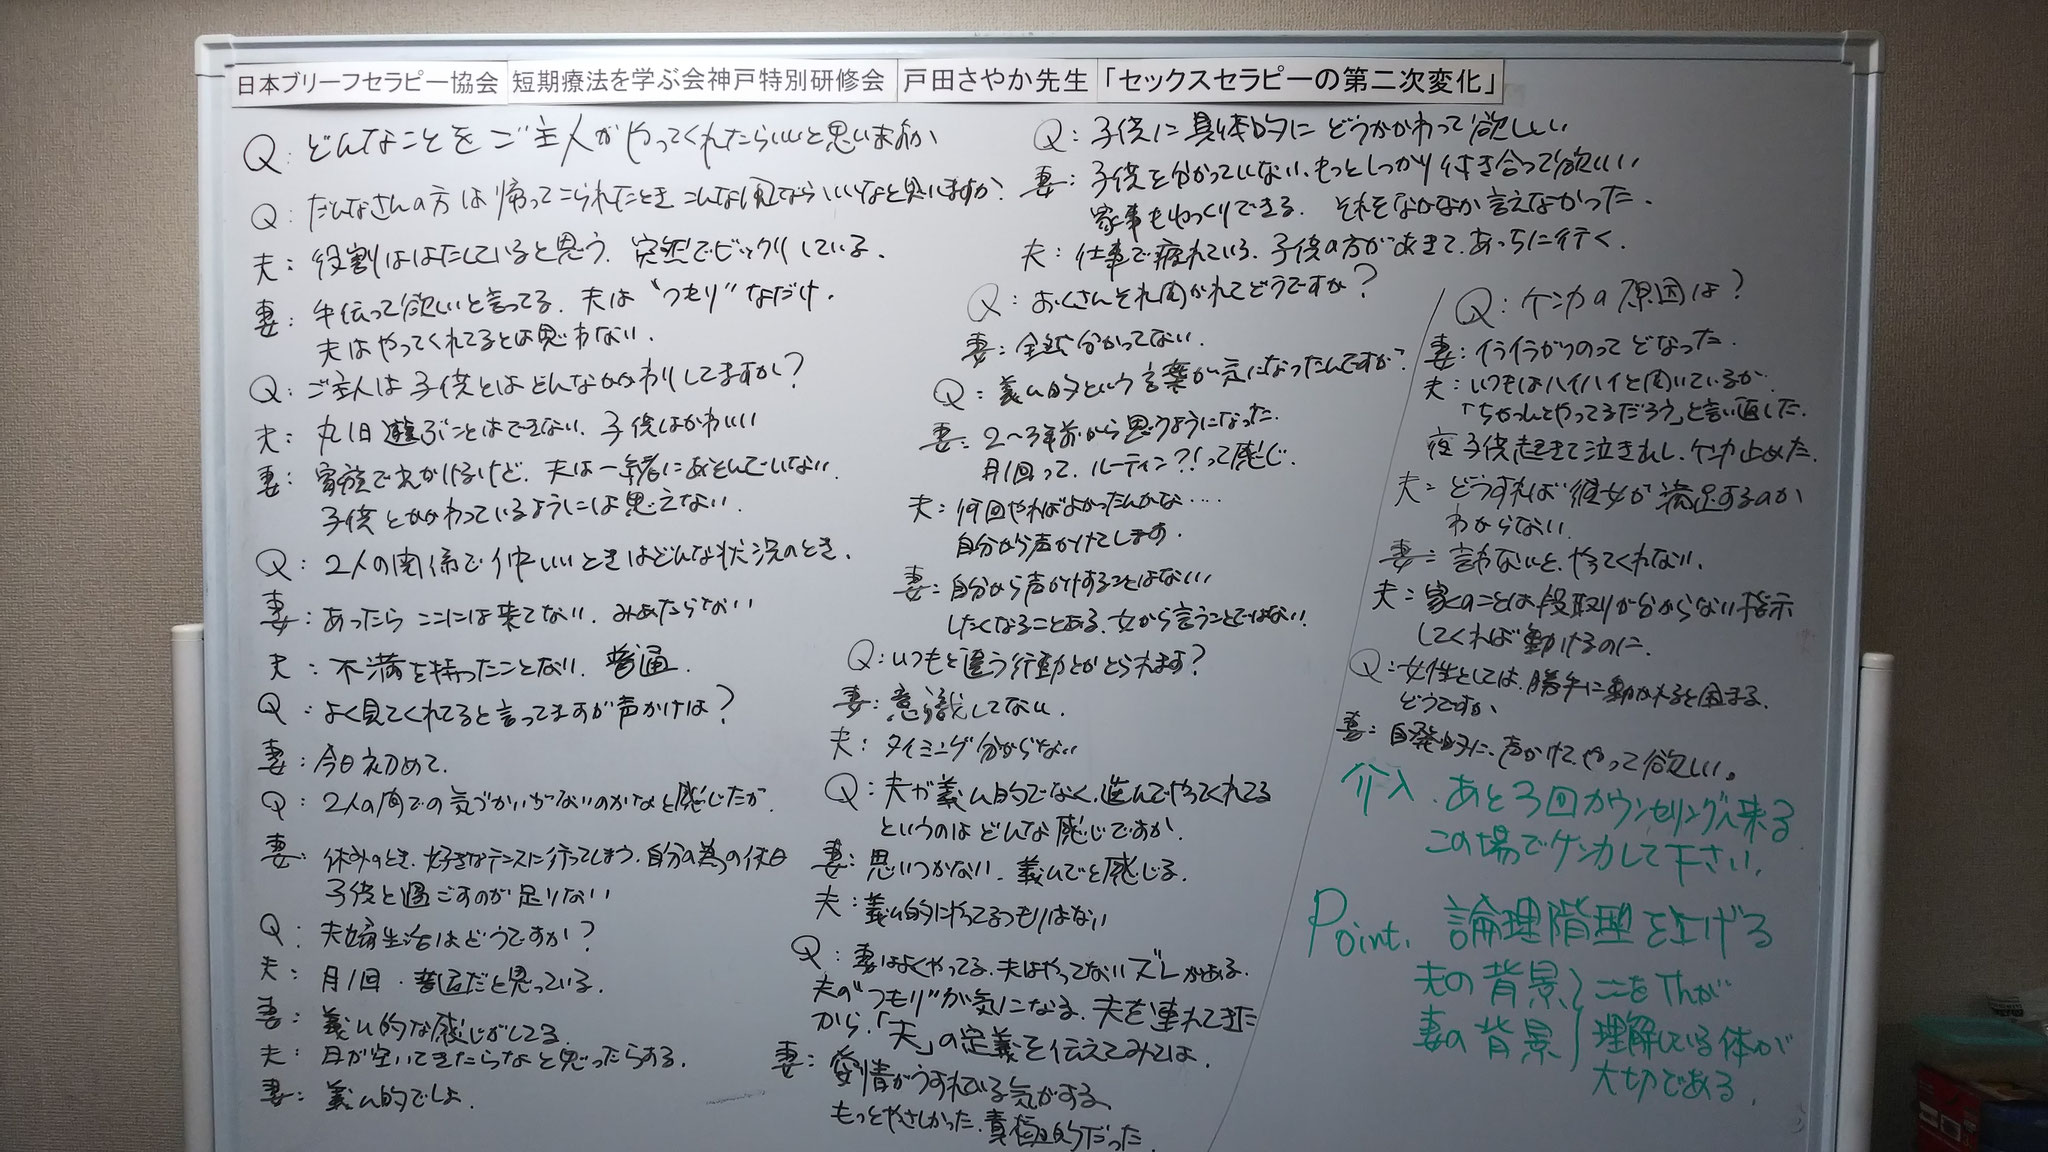 日本ブリーフセラピー協会 短期療法を学ぶ会神戸特別研修会 戸田さやか先生 「セックスセラピーの第二次変化」
Q: どんなことをご主人がやってくれたらいいと思いますか
Q: だんなさんの方は帰ってこられたとき こんな風ならいいなと思いますか?
夫: 役割ははたしていると思う。突然でビックリしている。
妻: 手伝って欲しいと言ってる。夫は"つもり"なだけ。
夫はやってくれてるとは思わない。
Q: ご主人は子供とはどんなかかわりしてますか?
夫: 丸1日遊ぶことはできない。子供はかわいい
妻: 家族で出かけるけど、夫は一緒にあそんでいない。
子供とかかわっているようには思えない。
Q: 2人の関係で仲いいときはどんな状況のとき。
妻: あったらここには来てない。みあたらない
夫: 不満を持ったことない。普通。
Q: よく見てくれてると言ってますが声かけは?
妻: 今日初めて。
Q: 2人の間での気づかいがないのかなと感じたが
妻: 休みのとき、好きなテニスに行ってしまう。自分の為の休日
子供と過ごすのが足りない
Q: 夫婦生活はどうですか?
夫: 月1回・普通だと思っている。
妻: 義ム的な感じがしてる
夫: 日が空いてきたらなと思ったらする。
妻: 義ム的でしょ。
Q: 子供に具体的にどうかかわって欲しい
妻: 子供を分かっていない、もっとしっかり付き合って欲しい
家事もゆっくりできる。それをなかなか言えなかった。
夫: 仕事で疲れている。子供の方があきて、あっちに行く。
Q: おくさんそれ聞かれてどうですか?
妻: 全然分かってない。
Q: 義ム的という言葉が気になったんですが?
妻: 2〜3年前から思うようになった。
月1回って、ルーティン?!って感じ。
夫: 何回やればよかったんかな……
自分から声かけてします。
妻: 自分から声かけすることはない
したくなることある、女から言うことではない。
Q: いつもと違う行動とかとられます?
妻: 意識してない。
夫: タイミング分からない
Q: 夫が義ム的でなく、進んでやってくれてる
というのはどんな感じですか。
妻: 思いつかない。義ムでと感じる。
夫: 義ム的にやってるつもりはない
Q: 妻はよくやってる、夫はやってないズレがある。
夫の"つもり"が気になる。夫を連れてきた
から、「夫」の定義を伝えてみては。
妻: 愛情がうすれている気がする、
もっとやさしかった、積極的だった。
Q: ケンカの原因は?
妻: イライラがつのってどなった。
夫: いつもはハイハイと聞いているが、
「ちゃんとやってるだろう」と言い返した。
夜子供起きて泣き出し、ケンカ止めた。
夫: どうすれば彼女が満足するのか
わからない。
妻: 言わないと、やってくれない。
夫: 家のことは段取りが分からない指示
してくれば動けるのに。
Q: 女性としては、勝手に動かれると困まる。
どうですか、
妻: 自発的に、声かけて、やって欲しい。
介入. あと3回カウンセリングへ来る
この場でケンカして下さい。
Point. 論理階型を上げる
夫の背景 ここをThが
妻の背景 理解している体が
大切である。